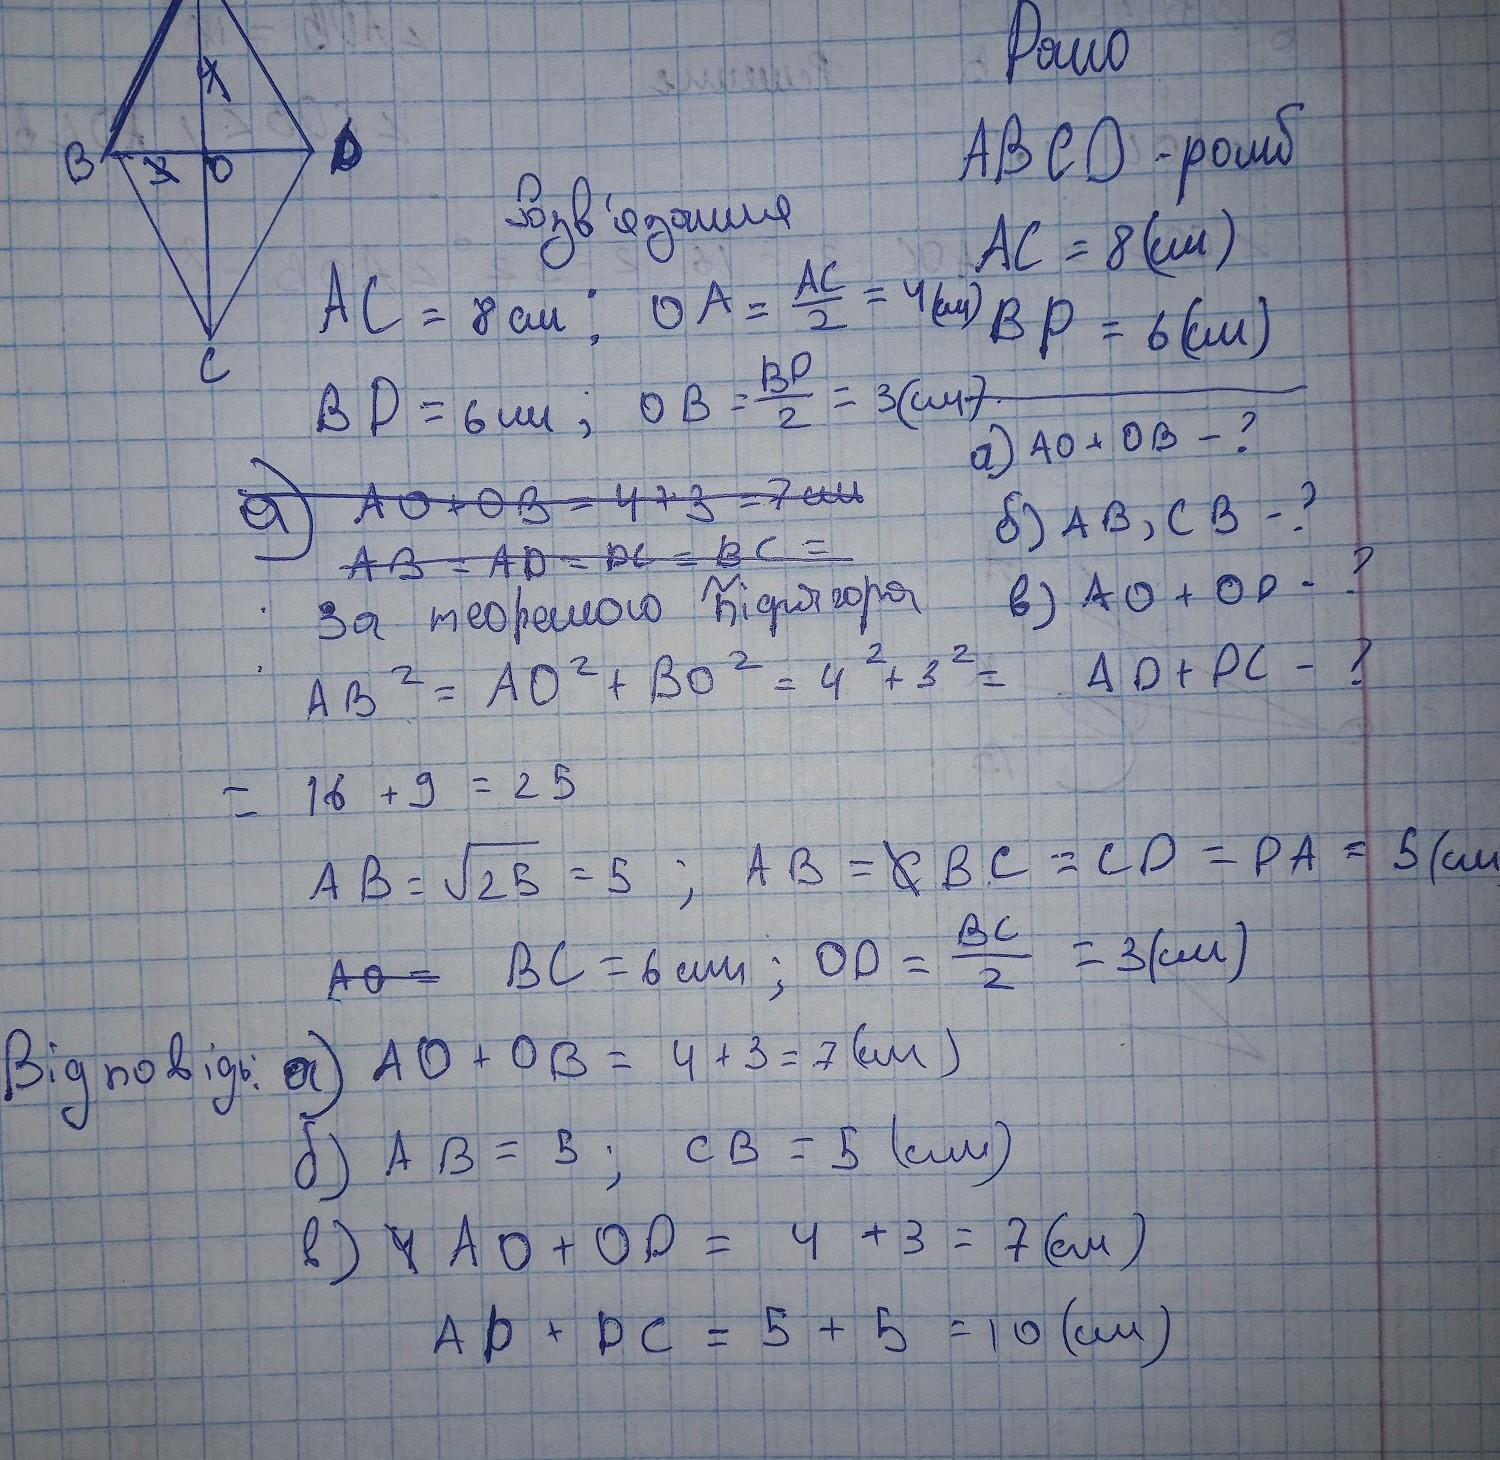 B O D
C
Дано
ABCD - ромб
AC = 8 (см)
BD = 6 (см)
а) AO + OB - ?
б) AB, CB - ?
в) AO + OD - ?
AD + DC - ?
Розв'язання
AC = 8 см; OA = AC/2 = 4 (см)
BD = 6 см; OB = BD/2 = 3 (см)
а) AO + OB = 4 + 3 = 7 см
AB = AD = DC = BC =
За теоремою Піфагора
AB² = AO² + BO² = 4² + 3² =
= 16 + 9 = 25
AB = √25 = 5; AB = BC = CD = DA = 5 (см
AO = BC = 6 см; OD = BC/2 = 3 (см)
Відповідь: а) AO + OB = 4 + 3 = 7 (см)
б) AB = 5; CB = 5 (см)
в) AO + OD = 4 + 3 = 7 (см)
AD + DC = 5 + 5 = 10 (см)